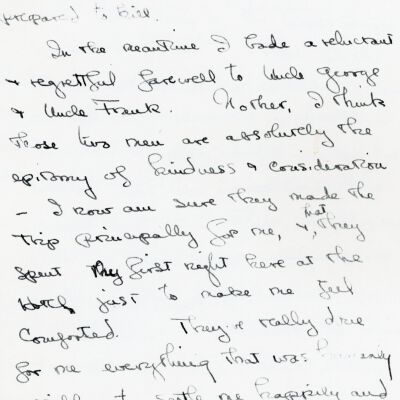 prepared to bill.
In the meantime I bade a reluctant
& regretful farewell to Uncle George
& Uncle Frank. Mother, I think
those two men are absolutely the
epitomy of kindness & consideration
- I now am sure they made the
trip principally for me, & that they
spent my first night here at the
hotel just to make me feel
comforted. They've really done
for me everything that was humanly
to settle me happily and